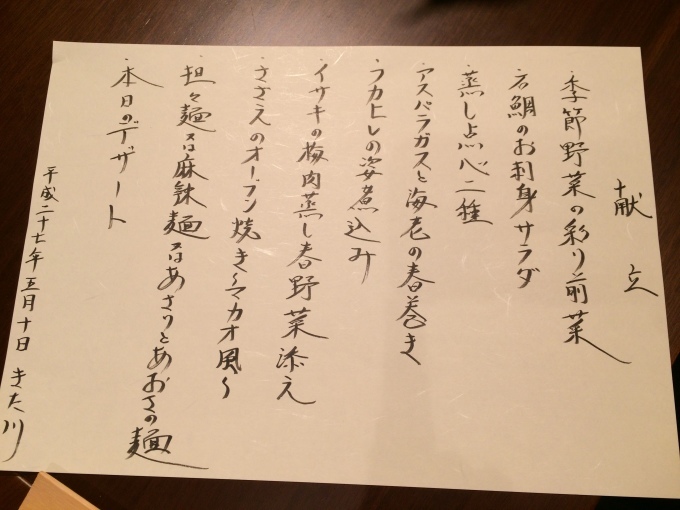 献立
・季節野菜の彩り前菜
・石鯛のお刺身サラダ
・蒸し点心二種
・アスパラガスと海老の春巻き
・フカヒレの姿煮込み
・イサキの梅肉蒸し春野菜添え
・さざえのオーブン焼き〜マカオ風〜
・担々麺又は麻辣麺又はあさりとあおさの麺
・本日のデザート
平成二十七年五月十日 きた川